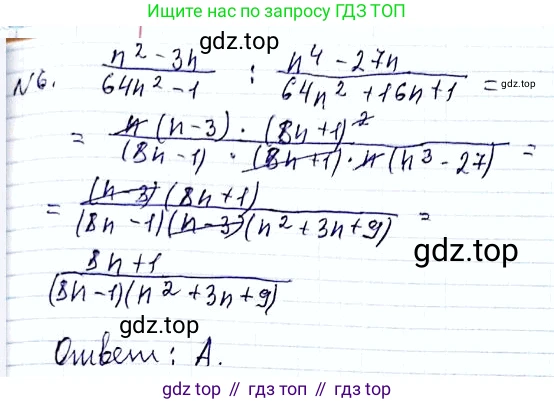 Ищите нас по запросу ГДЗ ТОП
гдз.top
N6. (n² - 3n)/(64n² - 1) : (n⁴ - 27n)/(64n² + 16n + 1) = гдз.top
= (n(n-3) · (8n+1)²)/((8n-1) · (8n+1) · n(n³ - 27)) =
= ((n-3)(8n+1))/((8n-1)(n-3)(n² + 3n + 9)) =
гдз.top
(8n+1)/((8n-1)(n² + 3n + 9))
гдз.top
Ответ: А.
гдз.top // гдз топ // гдз.top